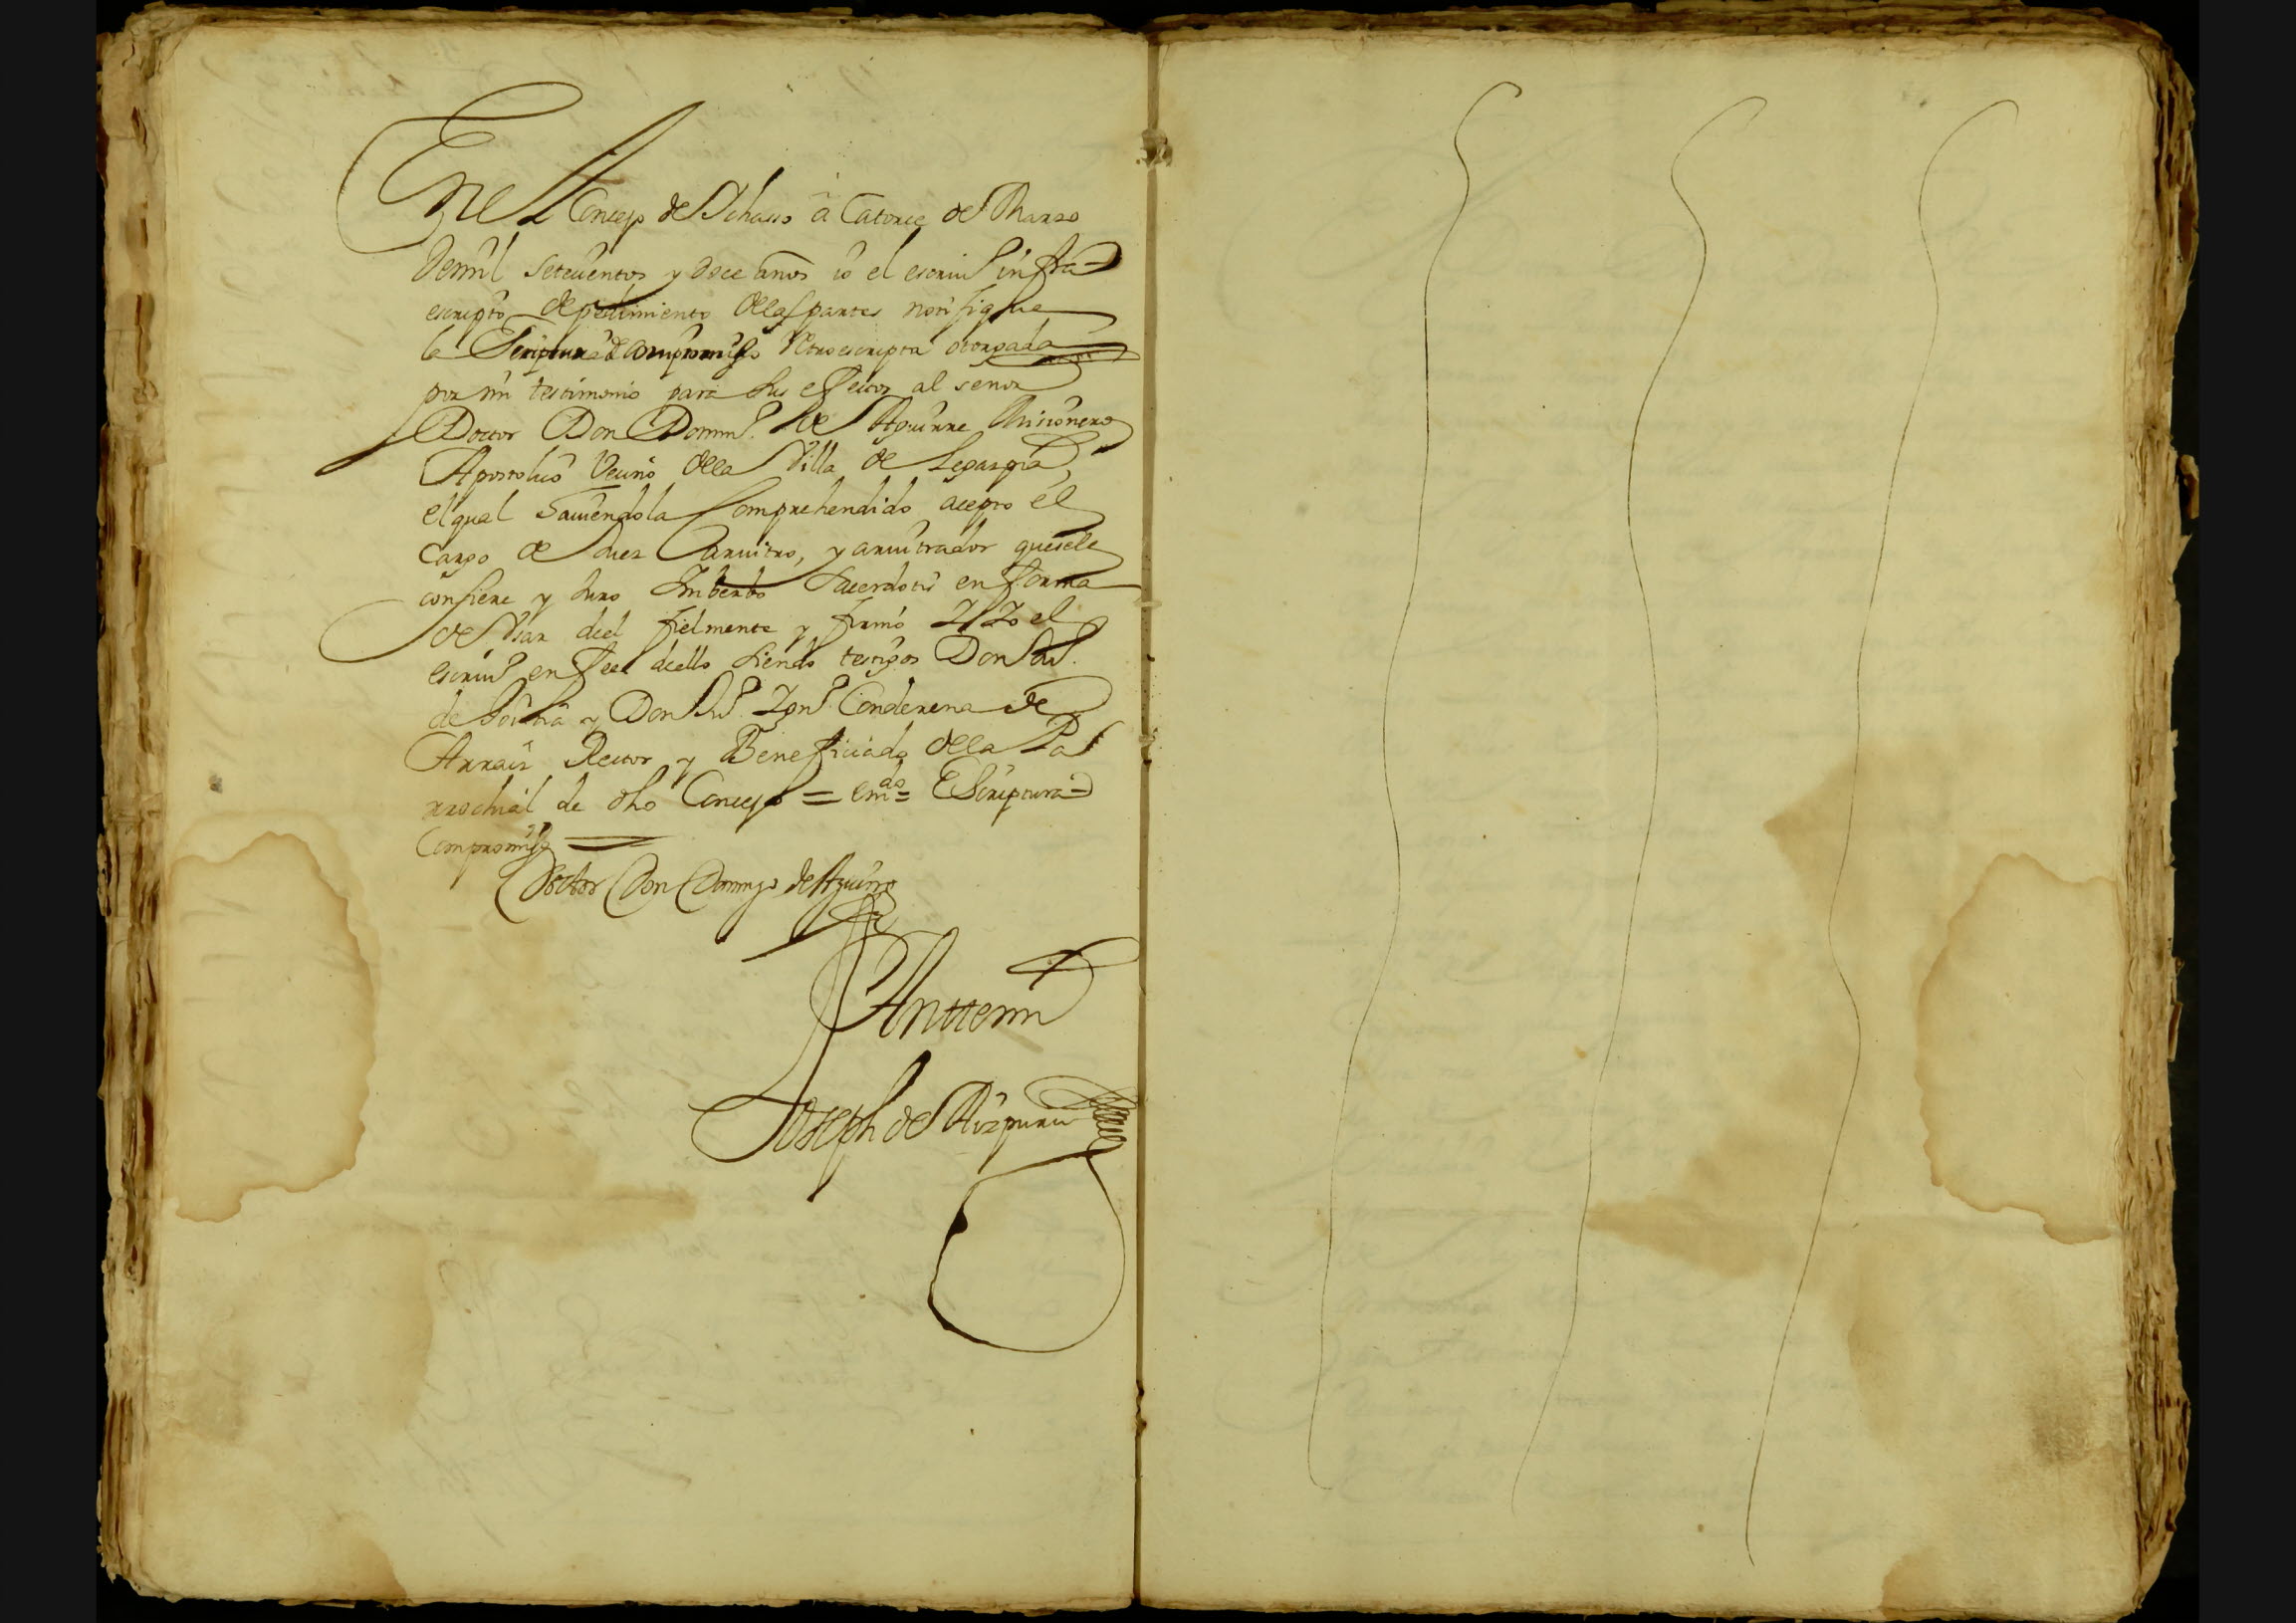 En el Concejo de Ichasso â Catorce de Marzo
de mil setecientos y doce años io el escriuº infra
escripto de pedimiento de las partes notifique
la Escriptura de Compromisso retroescripta otorgada
por mi testimonio para sus effectos al señor
Doctor Don Domⁿº. de Aguirre Misionero
Apostolico Vecino de la Villa de Legazpia,
el qual hauiendola Comprehendido acepto el
cargo de Juez Arvitro, y arvitrador que se le
confiere y Juro Inberbo Sacerdotis en forma
de Vsar del fielmente y firmó E Io el
escriuº en fee dello siendo testigos Don Juº.
de y Don Juº. Ignº. Conderena de
Arraiz Rector y Beneficiado de la Pa
rrochial de dho Concejo = emdo = EScriptura =
Compromiso
Doctor Don Domingo de Aguirre
Anttemi
Joseph de Aizpuru